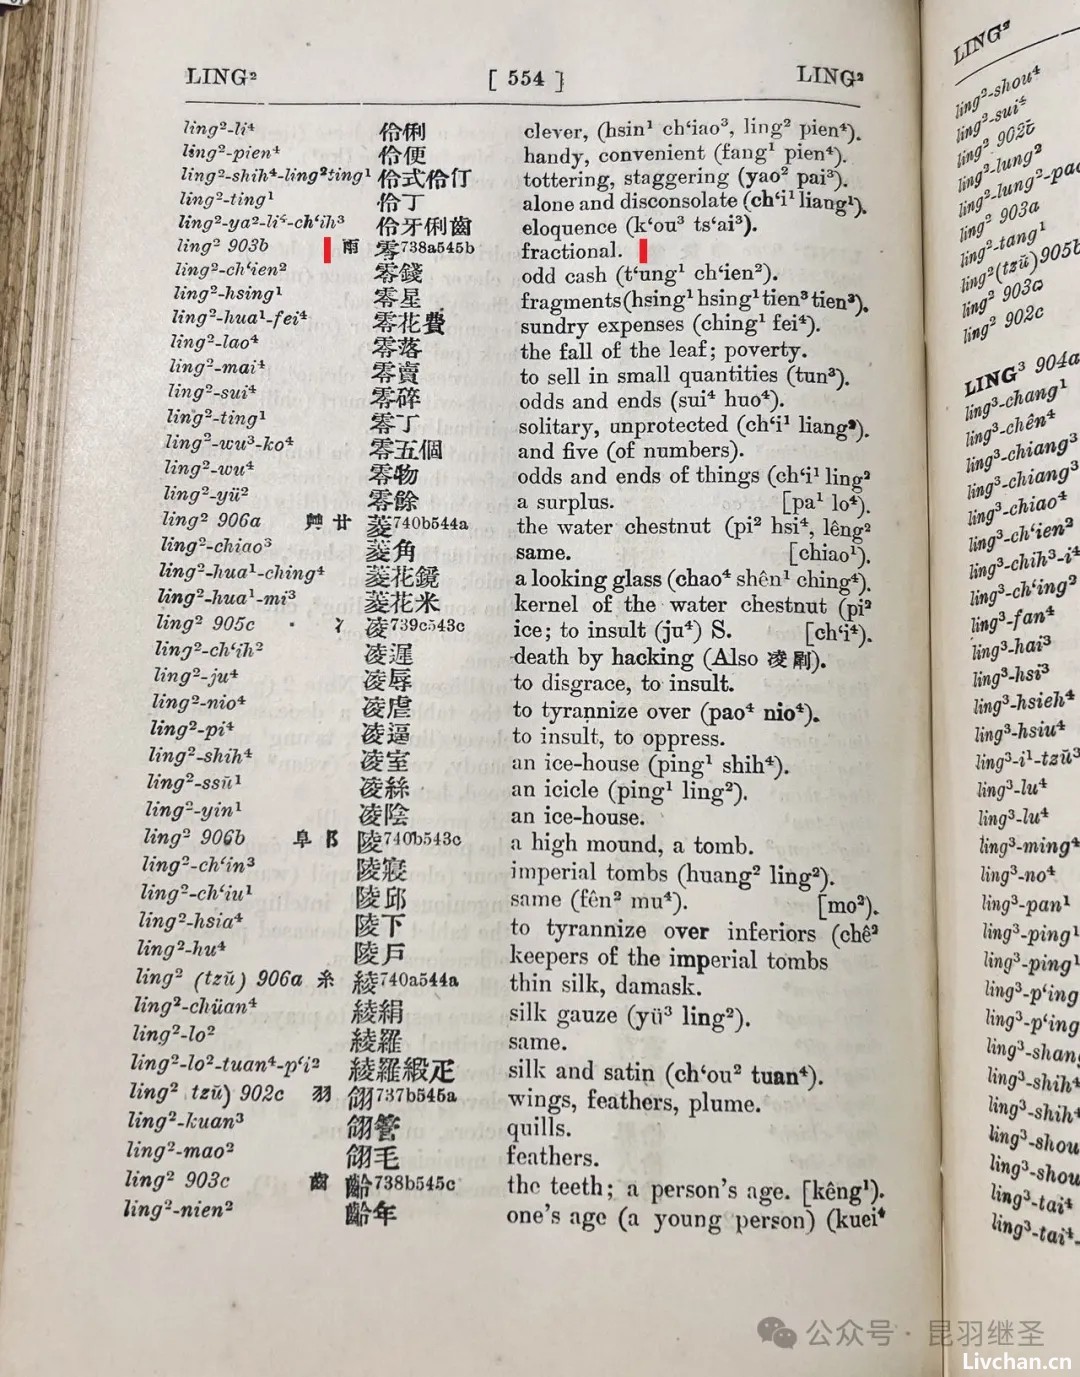 LING² [ 554 ] LING²
ling²-li⁴ 伶俐 clever, (hsin¹ ch‘iao³, ling² pien⁴).
ling²-pien⁴ 伶便 handy, convenient (fang¹ pien⁴).
ling²-shih⁴-ling²ting¹ 伶式伶仃 tottering, staggering (yao² pai³).
ling²-ting¹ 伶丁 alone and disconsolate (ch‘i¹ liang¹).
ling²-ya²-li⁴-ch‘ih³ 伶牙俐齒 eloquence (k‘ou³ ts‘ai³).
ling² 903b 雨 零738a545b fractional.
ling²-ch‘ien² 零錢 odd cash (t‘ung¹ ch‘ien²).
ling²-hsing¹ 零星 fragments (hsing¹ hsing¹ tien³ tien³).
ling²-hua¹-fei⁴ 零花費 sundry expenses (ching¹ fei⁴).
ling²-lao⁴ 零落 the fall of the leaf; poverty.
ling²-mai⁴ 零賣 to sell in small quantities (tun³).
ling²-sui⁴ 零碎 odds and ends (sui⁴ huo⁴).
ling²-ting¹ 零丁 solitary, unprotected (ch‘i¹ liang²).
ling²-wu³-ko⁴ 零五個 and five (of numbers).
ling²-wu⁴ 零物 odds and ends of things (ch‘i¹ ling²
ling²-yü² 零餘 a surplus. [pa¹ lo⁴).
ling² 906a 艸 廿 菱740b544a the water chestnut (pi² hsi⁴, lêng²
ling²-chiao³ 菱角 same. [chiao¹).
ling²-hua¹-ching⁴ 菱花鏡 a looking glass (chao⁴ shên¹ ching⁴).
ling²-hua¹-mi³ 菱花米 kernel of the water chestnut (pi²
ling² 905c 冫 凌739c543c ice; to insult (ju⁴) S. [ch‘i⁴).
ling²-ch‘ih² 凌遲 death by hacking (Also 凌剮).
ling²-ju⁴ 凌辱 to disgrace, to insult.
ling²-nio⁴ 凌虐 to tyrannize over (pao⁴ nio⁴).
ling²-pi⁴ 凌逼 to insult, to oppress.
ling²-shih⁴ 凌室 an ice-house (ping¹ shih⁴).
ling²-ssŭ¹ 凌絲 an icicle (ping¹ ling²).
ling²-yin¹ 凌陰 an ice-house.
ling² 906b 阜 阝 陵740b543c a high mound, a tomb.
ling²-ch‘in³ 陵寢 imperial tombs (huang² ling²).
ling²-ch‘iu¹ 陵邱 same (fên² mu⁴). [mo²).
ling²-hsia⁴ 陵下 to tyrannize over inferiors (chê²
ling²-hu⁴ 陵戶 keepers of the imperial tombs
ling² (tzŭ) 906a 糸 綾740a544a thin silk, damask.
ling²-chüan⁴ 綾絹 silk gauze (yü³ ling²).
ling²-lo² 綾羅 same.
ling²-lo²-tuan⁴-p‘i² 綾羅緞疋 silk and satin (ch‘ou² tuan⁴).
ling² tzŭ) 902c 羽 翎737b545a wings, feathers, plume.
ling²-kuan³ 翎管 quills.
ling²-mao² 翎毛 feathers.
ling² 903c 齒 齡738b545c the teeth; a person's age. [kêng¹).
ling²-nien² 齡年 one's age (a young person) (kuei⁴
LING²
ling²-shou⁴
ling²-sui⁴
ling² 902c
ling²-lung²
ling²-lung²-pao
ling² 903a
ling²-tang¹
ling² (tzŭ) 905b
ling² 903a
ling² 902c
LING³ 904a
ling³-chang¹
ling³-chên⁴
ling³-chiang³
ling³-chiang³
ling³-chiao⁴
ling³-ch‘ien²
ling³-chih³-i⁴
ling³-ch‘ing²
ling³-fan⁴
ling³-hai³
ling³-hsi³
ling³-hsieh⁴
ling³-hsiu⁴
ling³-i¹-tzŭ³
ling³-lu⁴
ling³-lu⁴
ling³-ming⁴
ling³-no⁴
ling³-pan¹
ling³-ping¹
ling³-ping¹
ling³-p‘ing
ling³-p‘ing
ling³-shang
ling³-shih⁴
ling³-shih⁴
ling³-shou
ling³-shou
ling³-tai⁴
ling³-tai⁴-
公众号 · 昆羽继圣
Livchan.cn